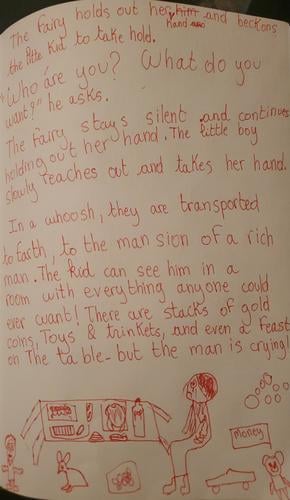 The fairy holds out her him and beckons
hand
the little kid to take hold.
"Who are you? What do you
want?" he asks.
The fairy stays silent and continues
holding out her hand. The little boy
slowly reaches out and takes her hand.
In a whoosh, they are transported
to Earth, to the mansion of a rich
man. The kid can see him in a
room with everything anyone could
ever want! There are stacks of gold
coins, Toys & trinkets, and even a feast
on The table - but the man is crying!
Money